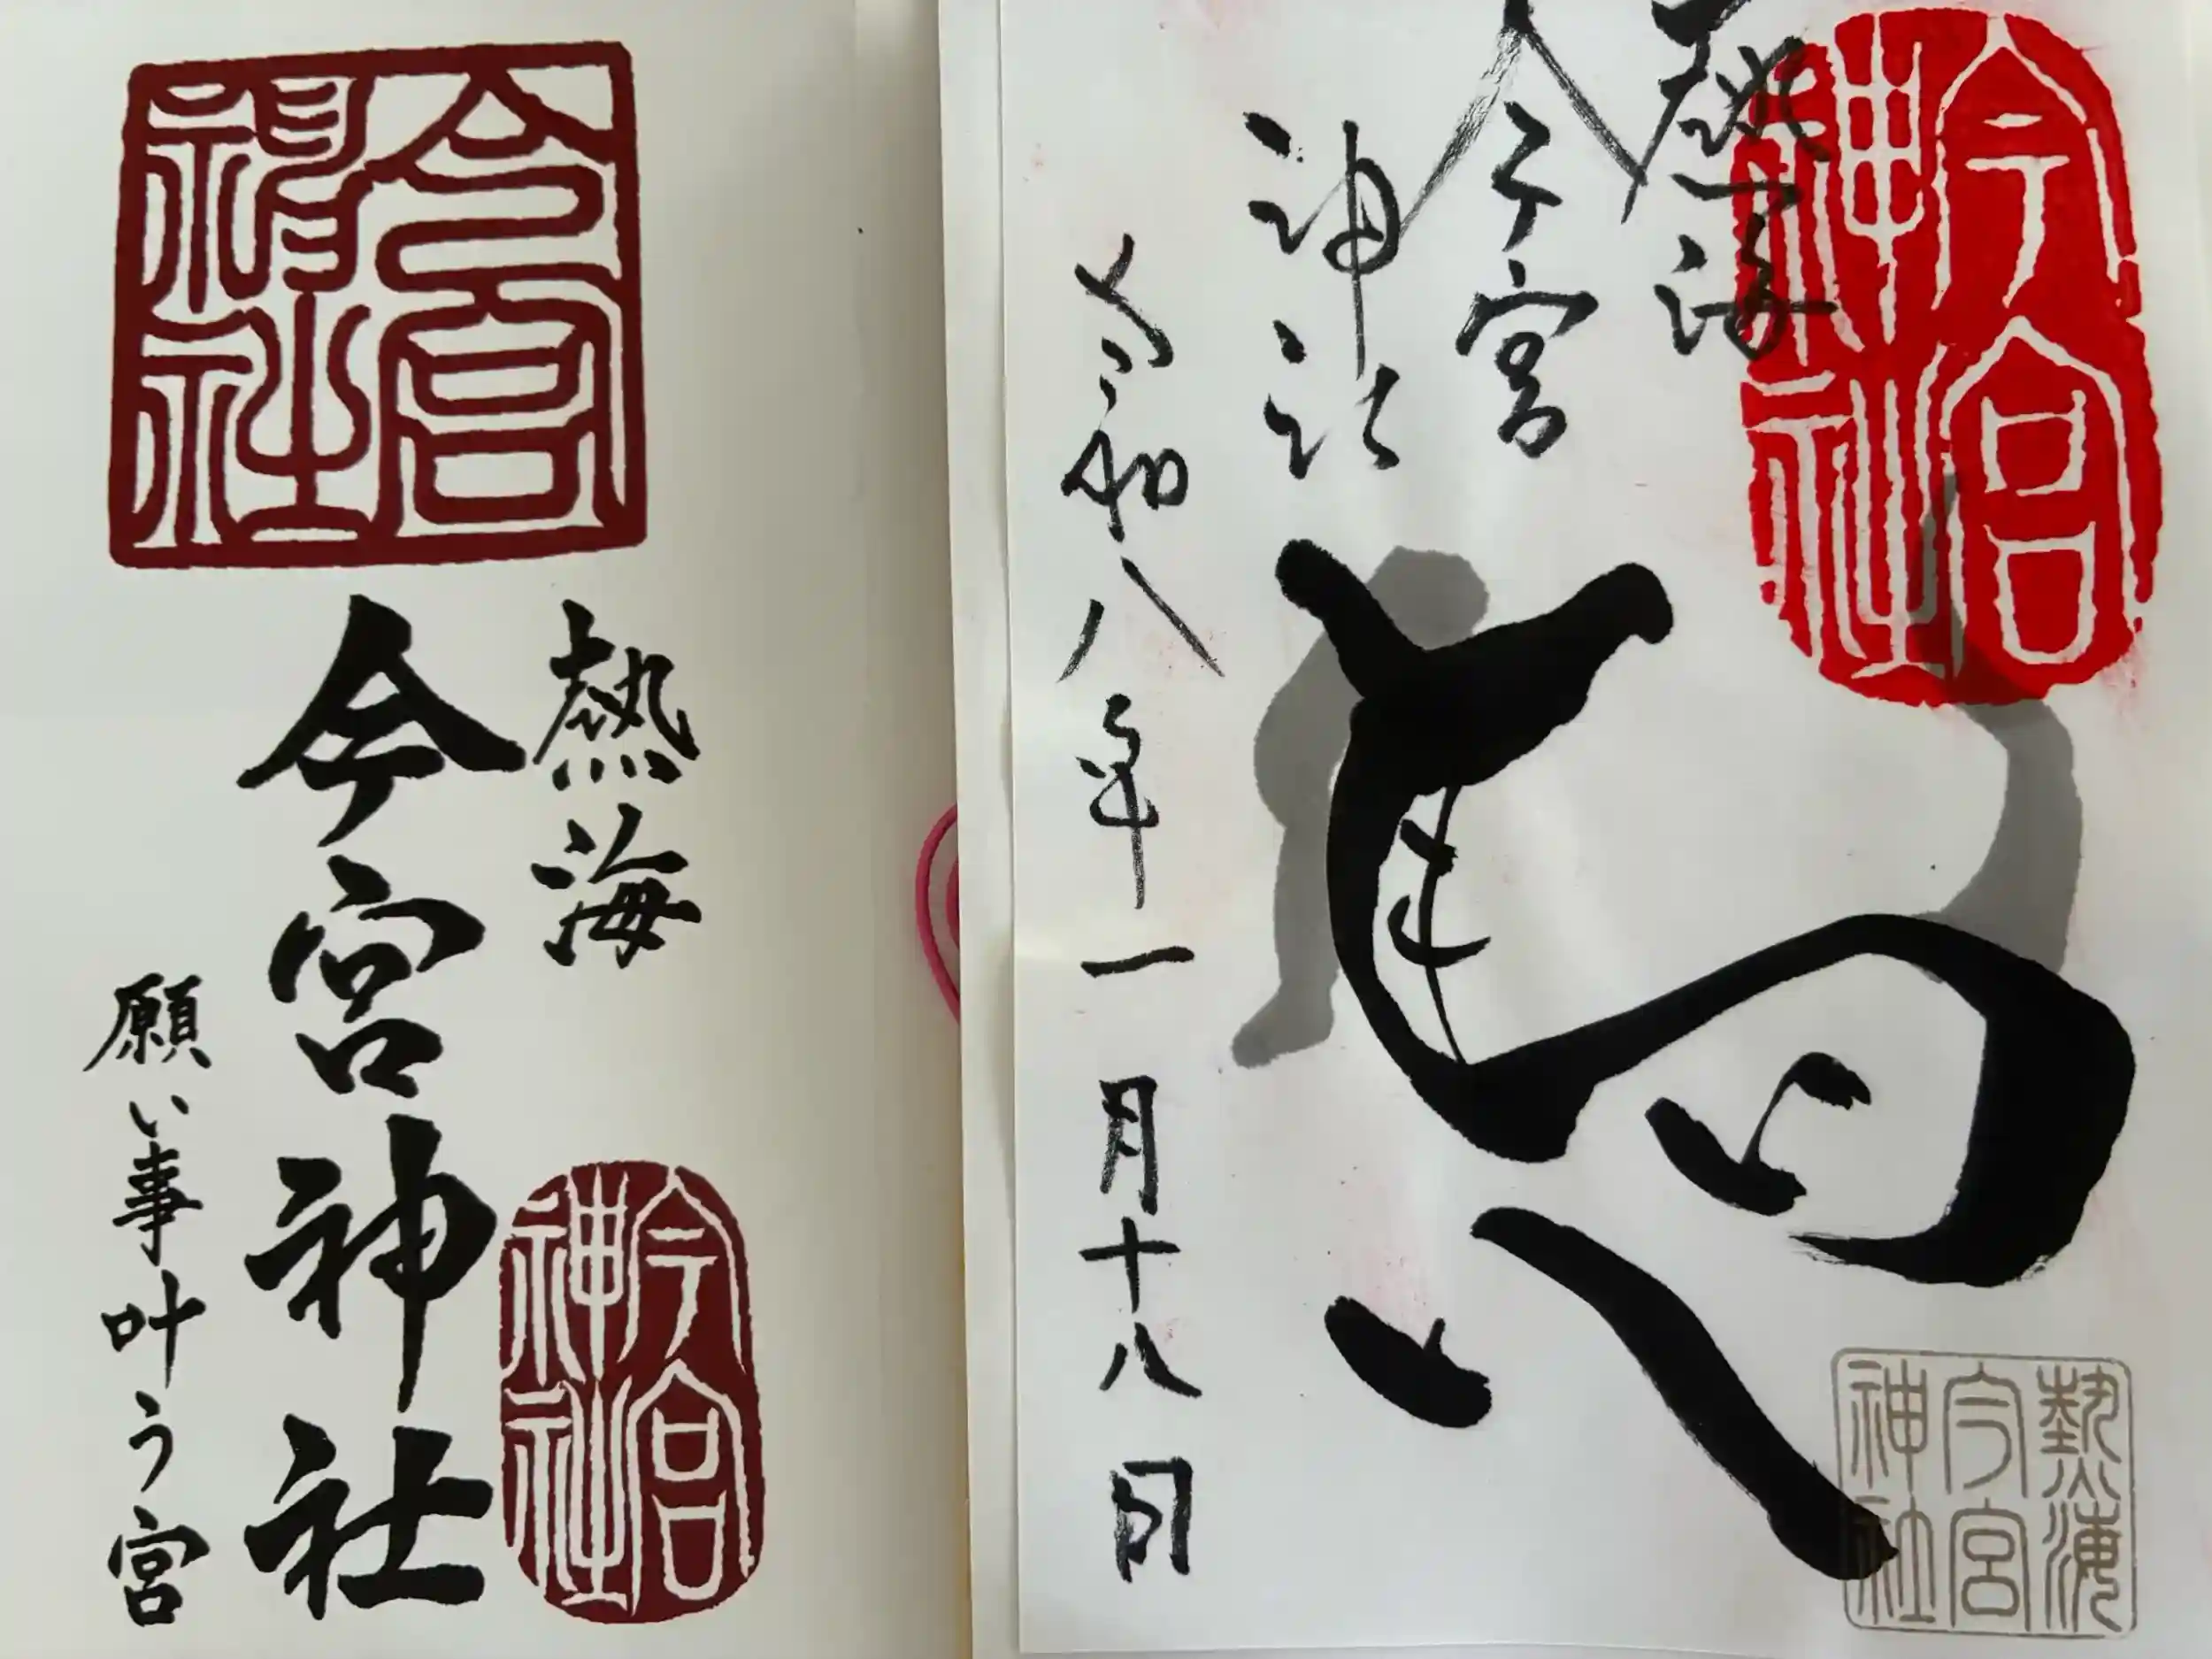 今宮
神社
熱海
今宮
神社
令和八年一月十八日
熱海
今宮
神社
今宮
神社
熱海
今宮神社
願い事叶う宮
今宮
神社